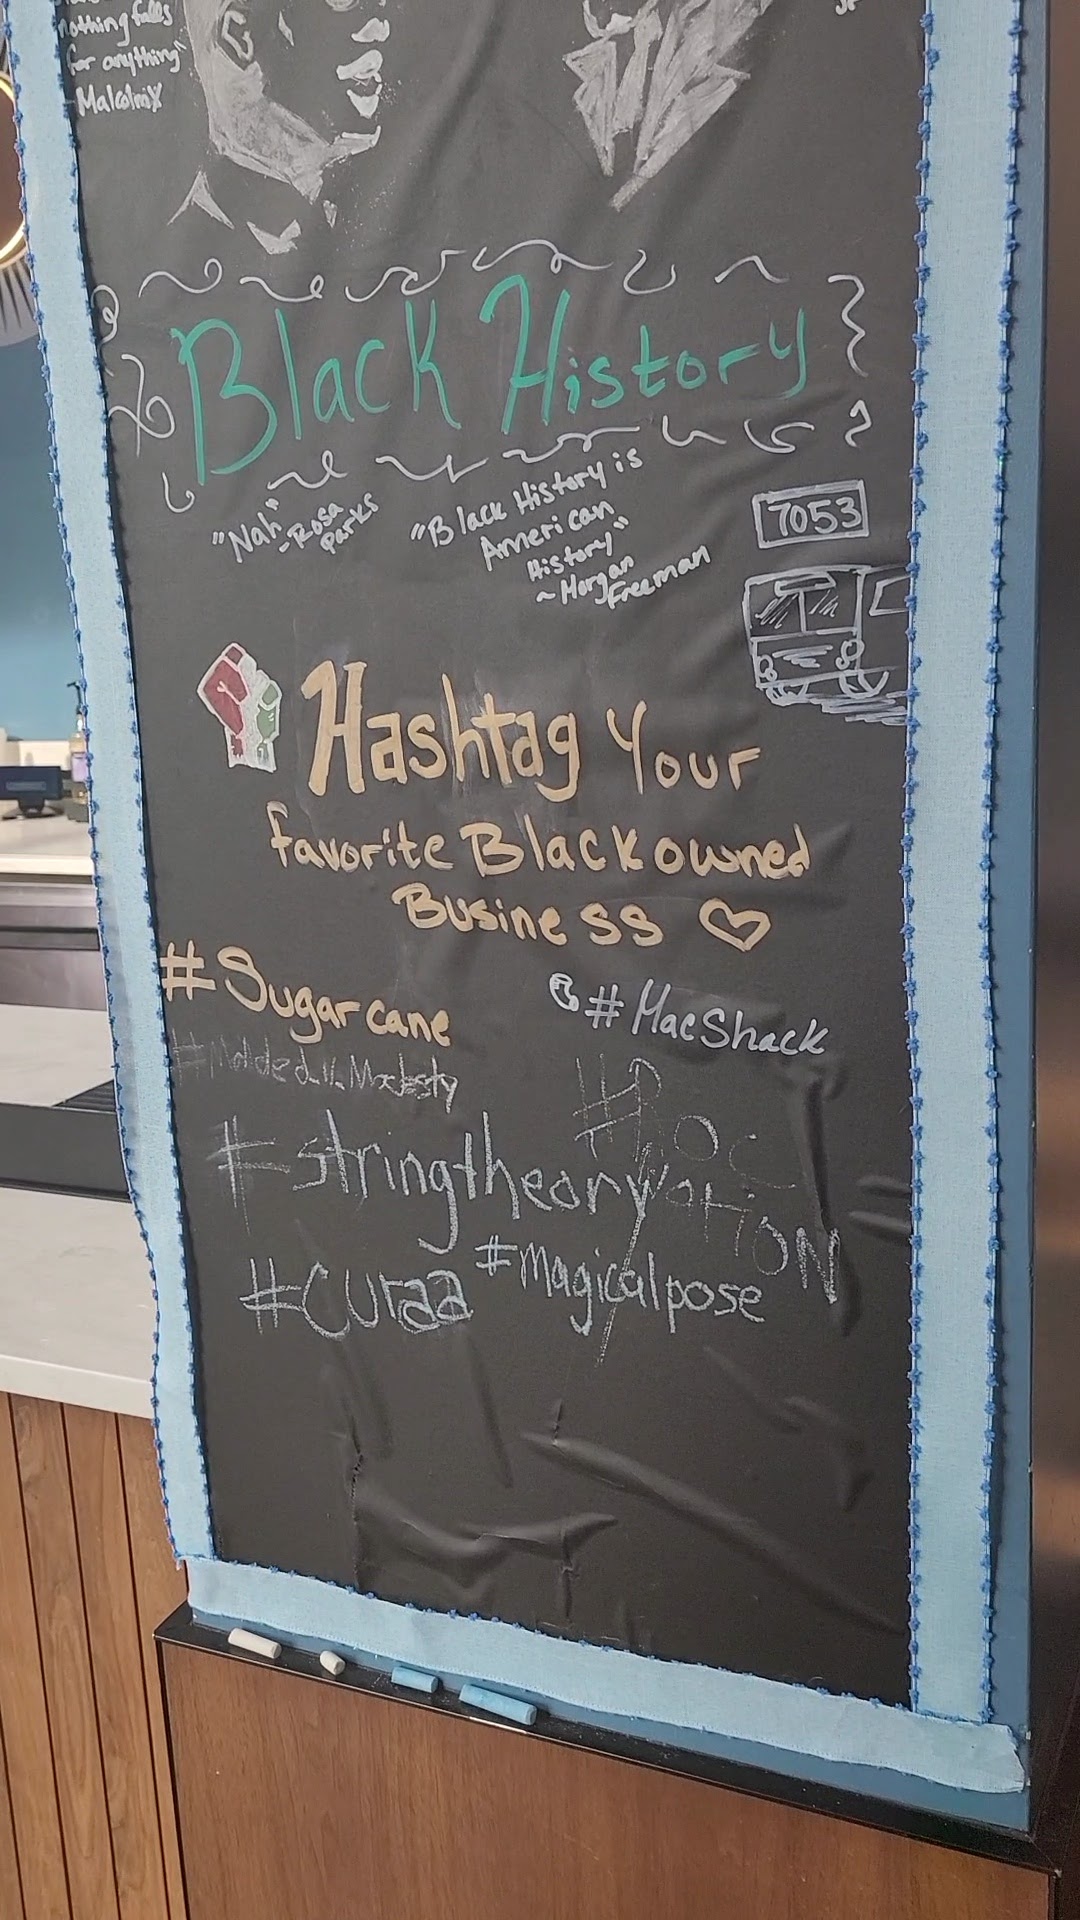 nothing falls
for anything"
Malcolm X
Black History
"Nah"
-Rosa
Parks
"Black History is
American
History"
~ Morgan
Freeman
7053
Hashtag Your
favorite Black owned
Business
#Sugarcane
#MacShack
#stringtheory
#Curaa
#magicalpose